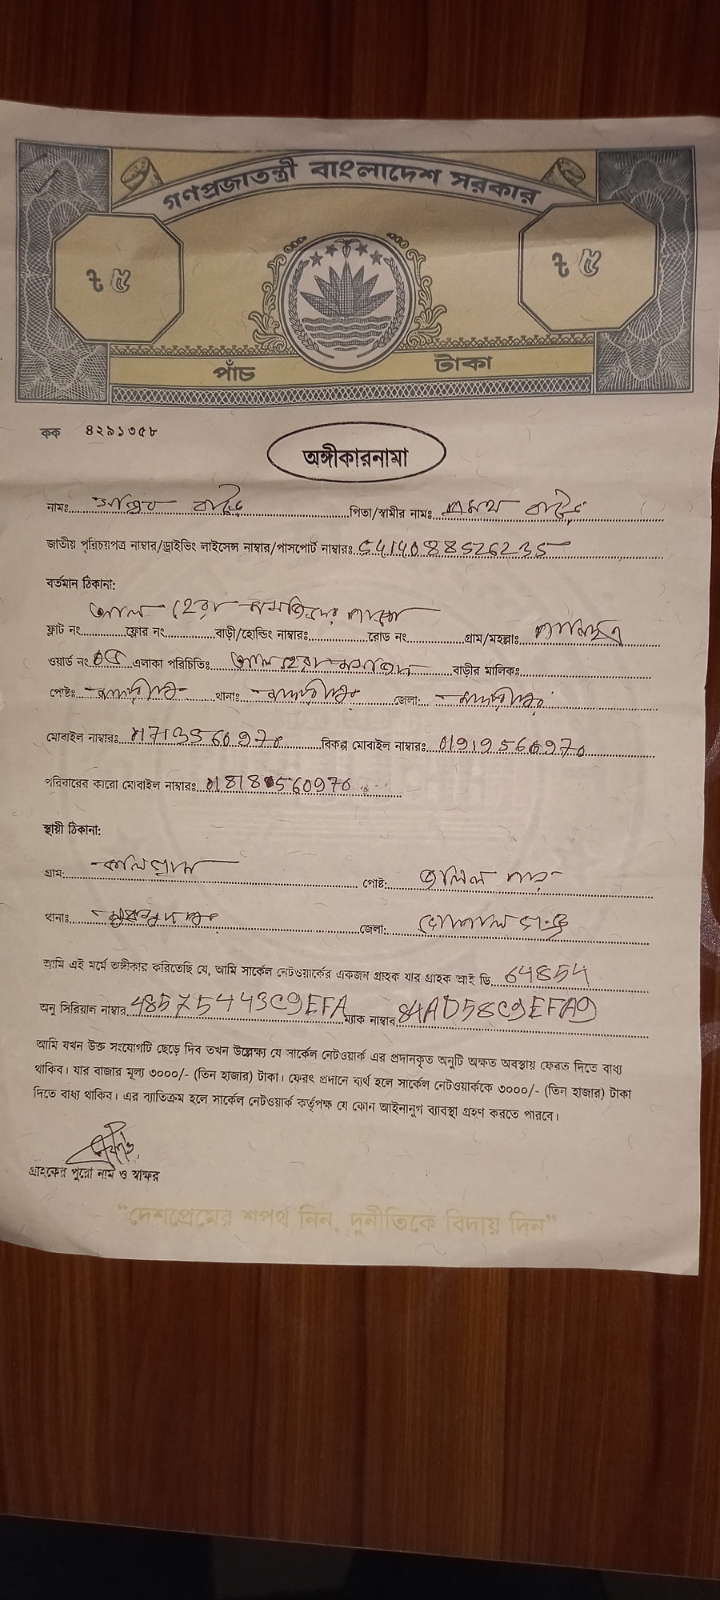 গণপ্রজাতন্ত্রী বাংলাদেশ সরকার
৳ ৫ ৳ ৫
পাঁচ টাকা
কক ৪২৯১৩৫৮
অঙ্গীকারনামা
নামঃ পিতা/স্বামীর নামঃ
জাতীয় পরিচয়পত্র নাম্বার/ড্রাইভিং লাইসেন্স নাম্বার/পাসপোর্ট নাম্বারঃ 5414088526235
বর্তমান ঠিকানা:
আল হেরা মসজিদের
ফ্লাট নং ফ্লোর নং বাড়ী/হোল্ডিং নাম্বারঃ রোড নং গ্রাম/মহল্লাঃ
ওয়ার্ড নং 05 এলাকা পরিচিতিঃ আল হেরা মসজিদ বাড়ীর মালিকঃ
পোষ্টঃ মাদারীপুর থানাঃ মাদারীপুর জেলা: মাদারীপুর
মোবাইল নাম্বারঃ 01713560970 বিকল্প মোবাইল নাম্বারঃ 01919560970
পরিবারের কারো মোবাইল নাম্বারঃ 01818560970
স্থায়ী ঠিকানা:
গ্রাম: কলিগ্রাম পোষ্ট: জলিল পাড়
থানাঃ মুকসুদপুর জেলা: গোপালগঞ্জ
আমি এই মর্মে অঙ্গীকার করিতেছি যে, আমি সার্কেল নেটওয়ার্কের একজন গ্রাহক যার গ্রাহক আই ডি 64854
অনু সিরিয়াল নাম্বার 48575443C9EFA ম্যাক নাম্বার 84AD58C9EFA9
আমি যখন উক্ত সংযোগটি ছেড়ে দিব তখন উল্লেখ্য যে সার্কেল নেটওয়ার্ক এর প্রদানকৃত অনুটি অক্ষত অবস্থায় ফেরত দিতে বাধ্য
থাকিব। যার বাজার মূল্য ৩০০০/- (তিন হাজার) টাকা। ফেরৎ প্রদানে ব্যর্থ হলে সার্কেল নেটওয়ার্ককে ৩০০০/- (তিন হাজার) টাকা
দিতে বাধ্য থাকিব। এর ব্যতিক্রম হলে সার্কেল নেটওয়ার্ক কর্তৃপক্ষ যে কোন আইনানুগ ব্যবস্থা গ্রহণ করতে পারবে।
গ্রাহকের পুরো নাম ও স্বাক্ষর
"দেশপ্রেমের শপথ নিন, দুর্নীতিকে বিদায় দিন"